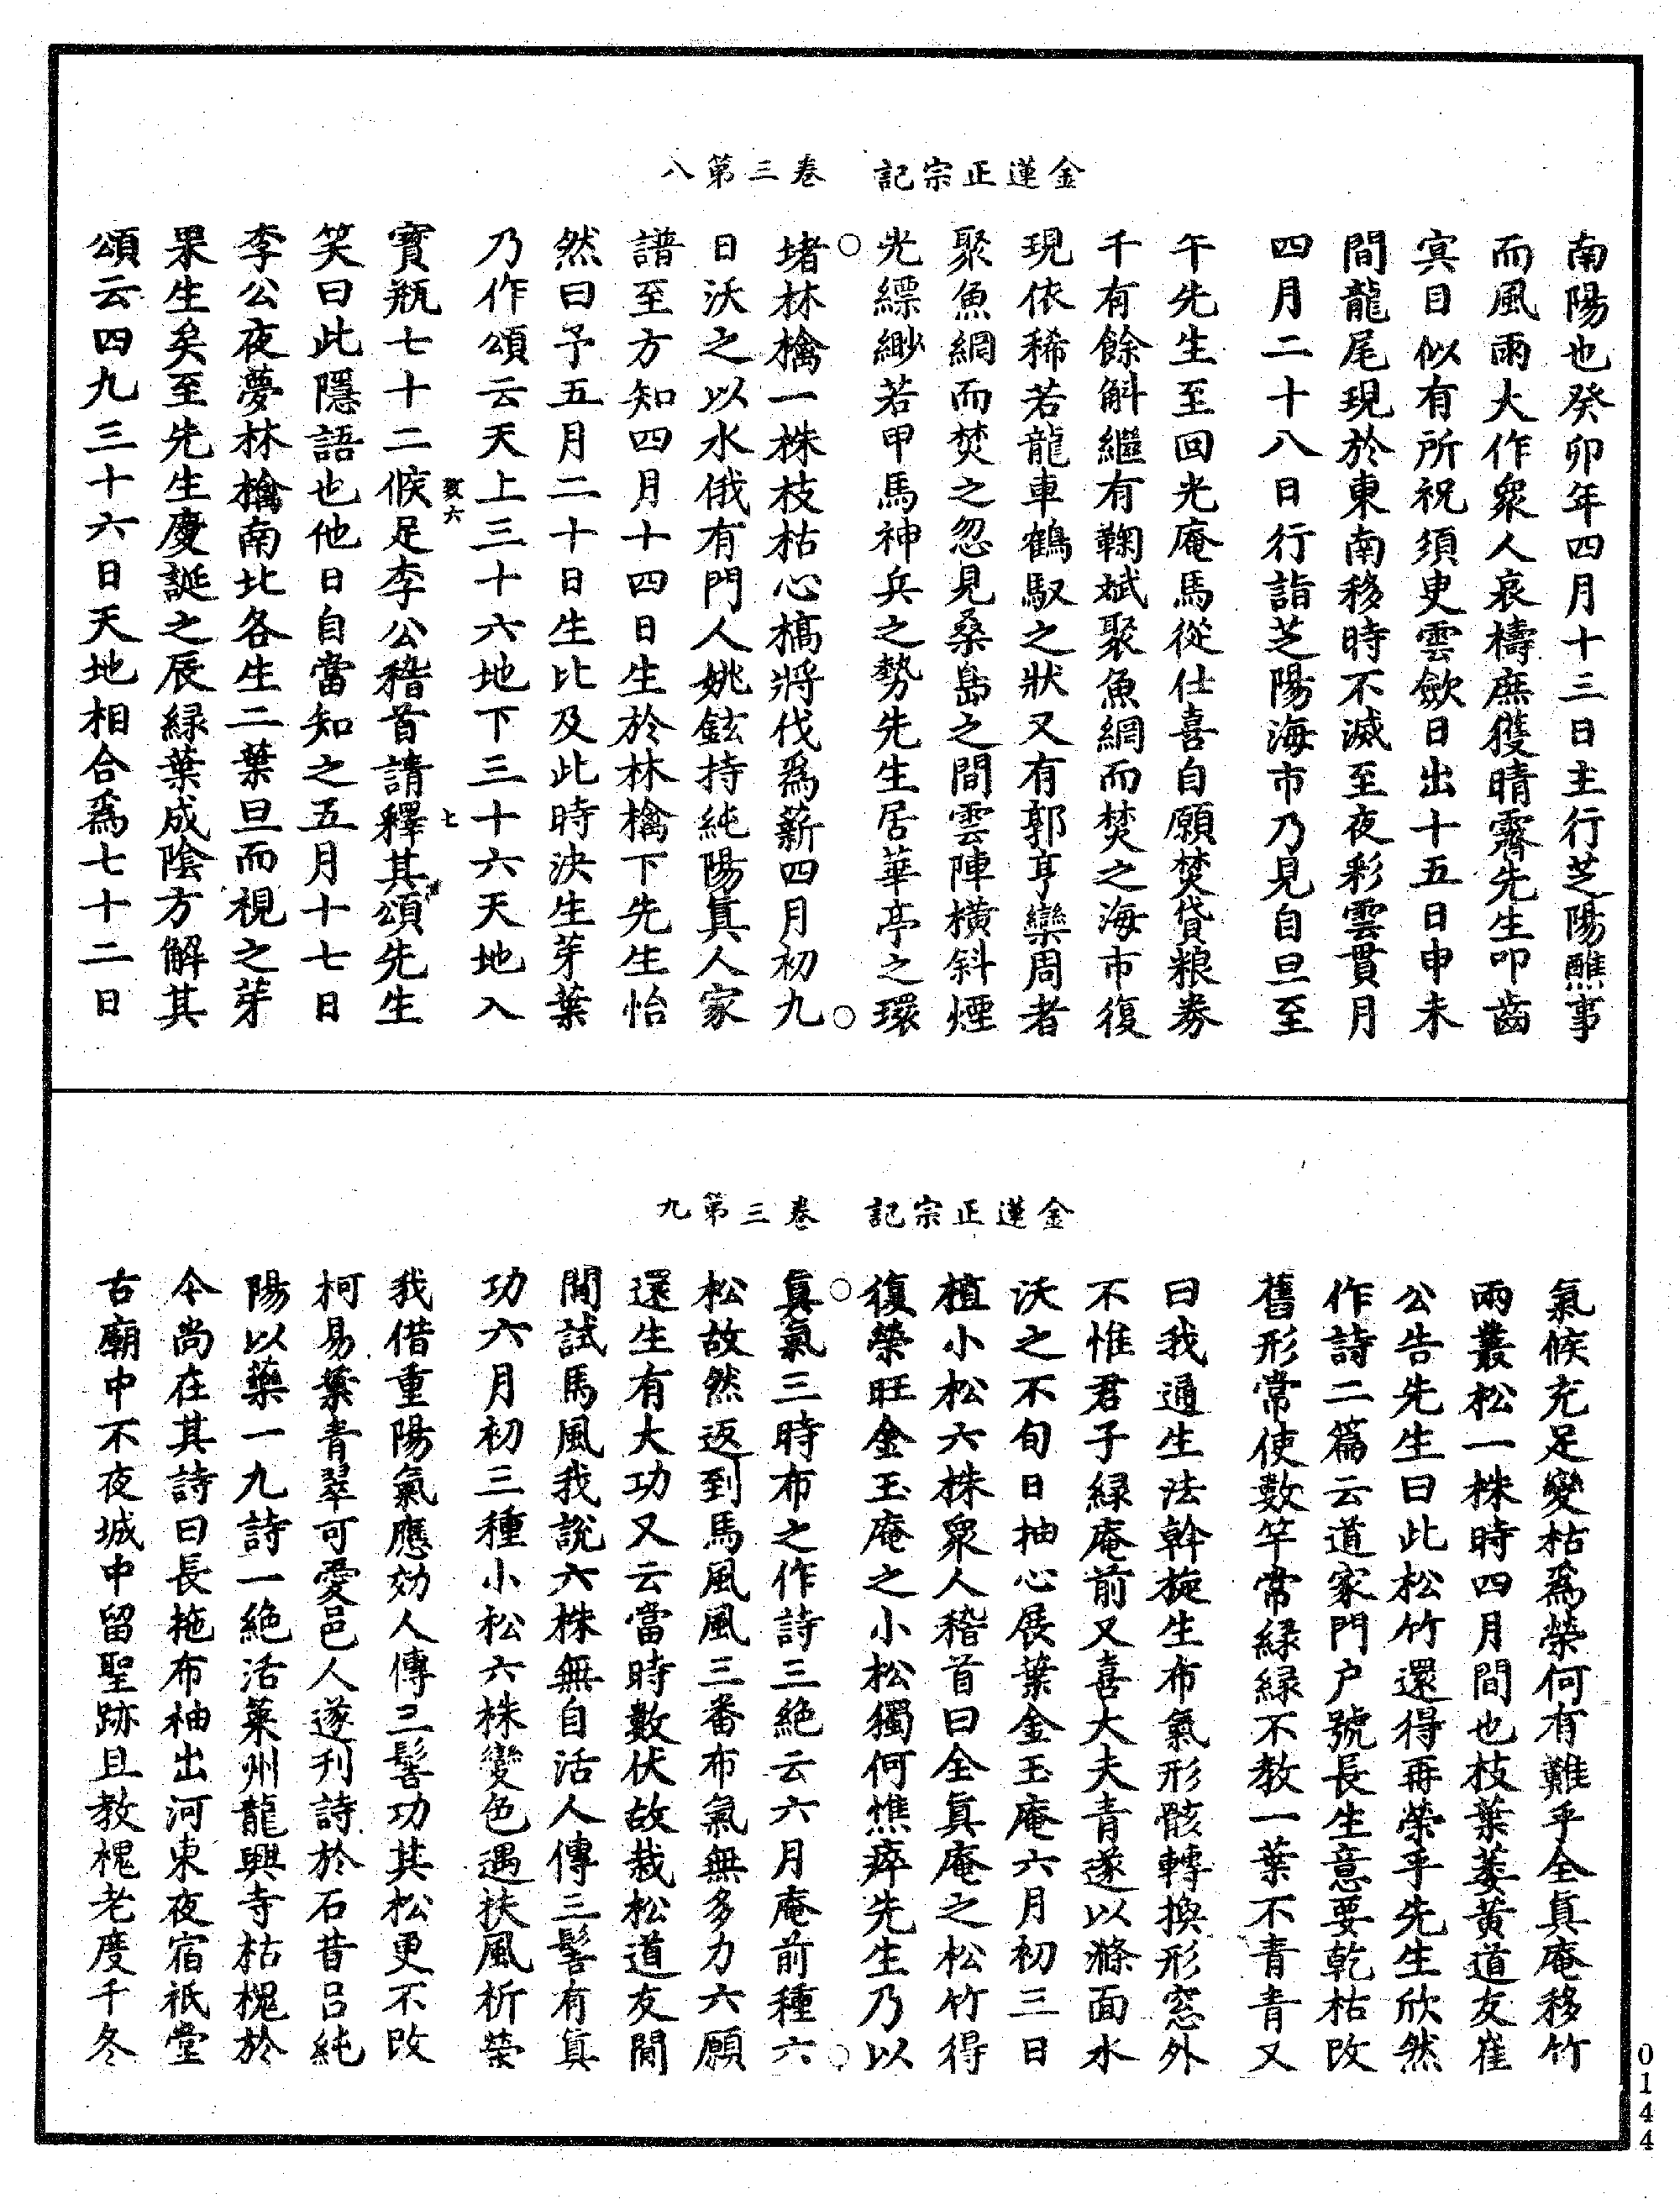 金蓮正宗記　卷三第八
南陽也癸卯年四月十三日主行芝陽醮事
而風雨大作衆人哀禱庶獲晴霽先生叩齒
㝠目似有所祝須㬰雲歛日出十五日申未
間龍尾現於東南移時不滅至夜彩雲貫月
四月二十八日行詣芝陽海市乃見自旦至
午先生至回光庵馬從仕喜自願焚貸粮劵
千有餘斛繼有鞠斌聚魚網而焚之海市復
現依稀若龍車鶴馭之狀又有郭亨欒周者
聚魚網而焚之忽見桑島之間雲陣橫斜煙
光縹緲若甲馬神兵之勢先生居華亭之環
堵林檎一株枝枯心槁將伐爲薪四月初九
日沃之以水俄有門人姚鉉持純陽眞人家
譜至方知四月十四日生於林檎下先生怡
然曰予五月二十日生比及此時決生芽葉
乃作頌云天上三十六地下三十六天地入
寳瓶七十二候足李公稽首請釋其頌先生
笑曰此隱語也他日自當知之五月十七日
李公夜夢林檎南北各生二葉旦而視之芽
果生矣至先生慶誕之辰緑葉成隂方解其
頌云四九三十六日天地相合爲七十二日
六
七
金蓮正宗記　卷三第九
氣候充足變枯爲榮何有難乎全眞庵移竹
兩叢松一株時四月間也枝葉萎黃道友崔
公告先生曰此松竹還得再榮乎先生欣然
作詩二篇云道家門户號長生意要乾枯改
舊形常使數竿常緑緑不教一葉不青青又
曰我通生法幹旋生布氣形骸轉換形窓外
不惟君子緑庵前又喜大夫青遂以滌面水
沃之不旬日抽心展葉金玉庵六月初三日
植小松六株衆人稽首曰全眞庵之松竹得
復榮旺金玉庵之小松獨何憔瘁先生乃以
眞氣三時布之作詩三絶云六月庵前種六
松故然返到馬風風三番布氣無多力六願
還生有大功又云當時數伏故栽松道友閒
閒試馬風我說六株無自活人傳三髻有眞
功六月初三種小松六株變色遇扶風析榮
我借重陽氣應効人傳三髻功其松更不改
柯易葉青翠可愛邑人遂刋詩於石昔吕純
陽以藥一丸詩一絶活萊州龍興寺枯槐於
今尚在其詩曰長拖布柚出河東夜宿祇堂
古廟中不夜城中留聖跡且教槐老度千冬
0144